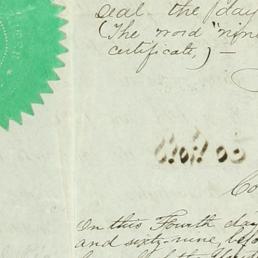 seal the day
(The word "nine
certificate,) —
Co
On this Fourth day
and sixty-nine, befo